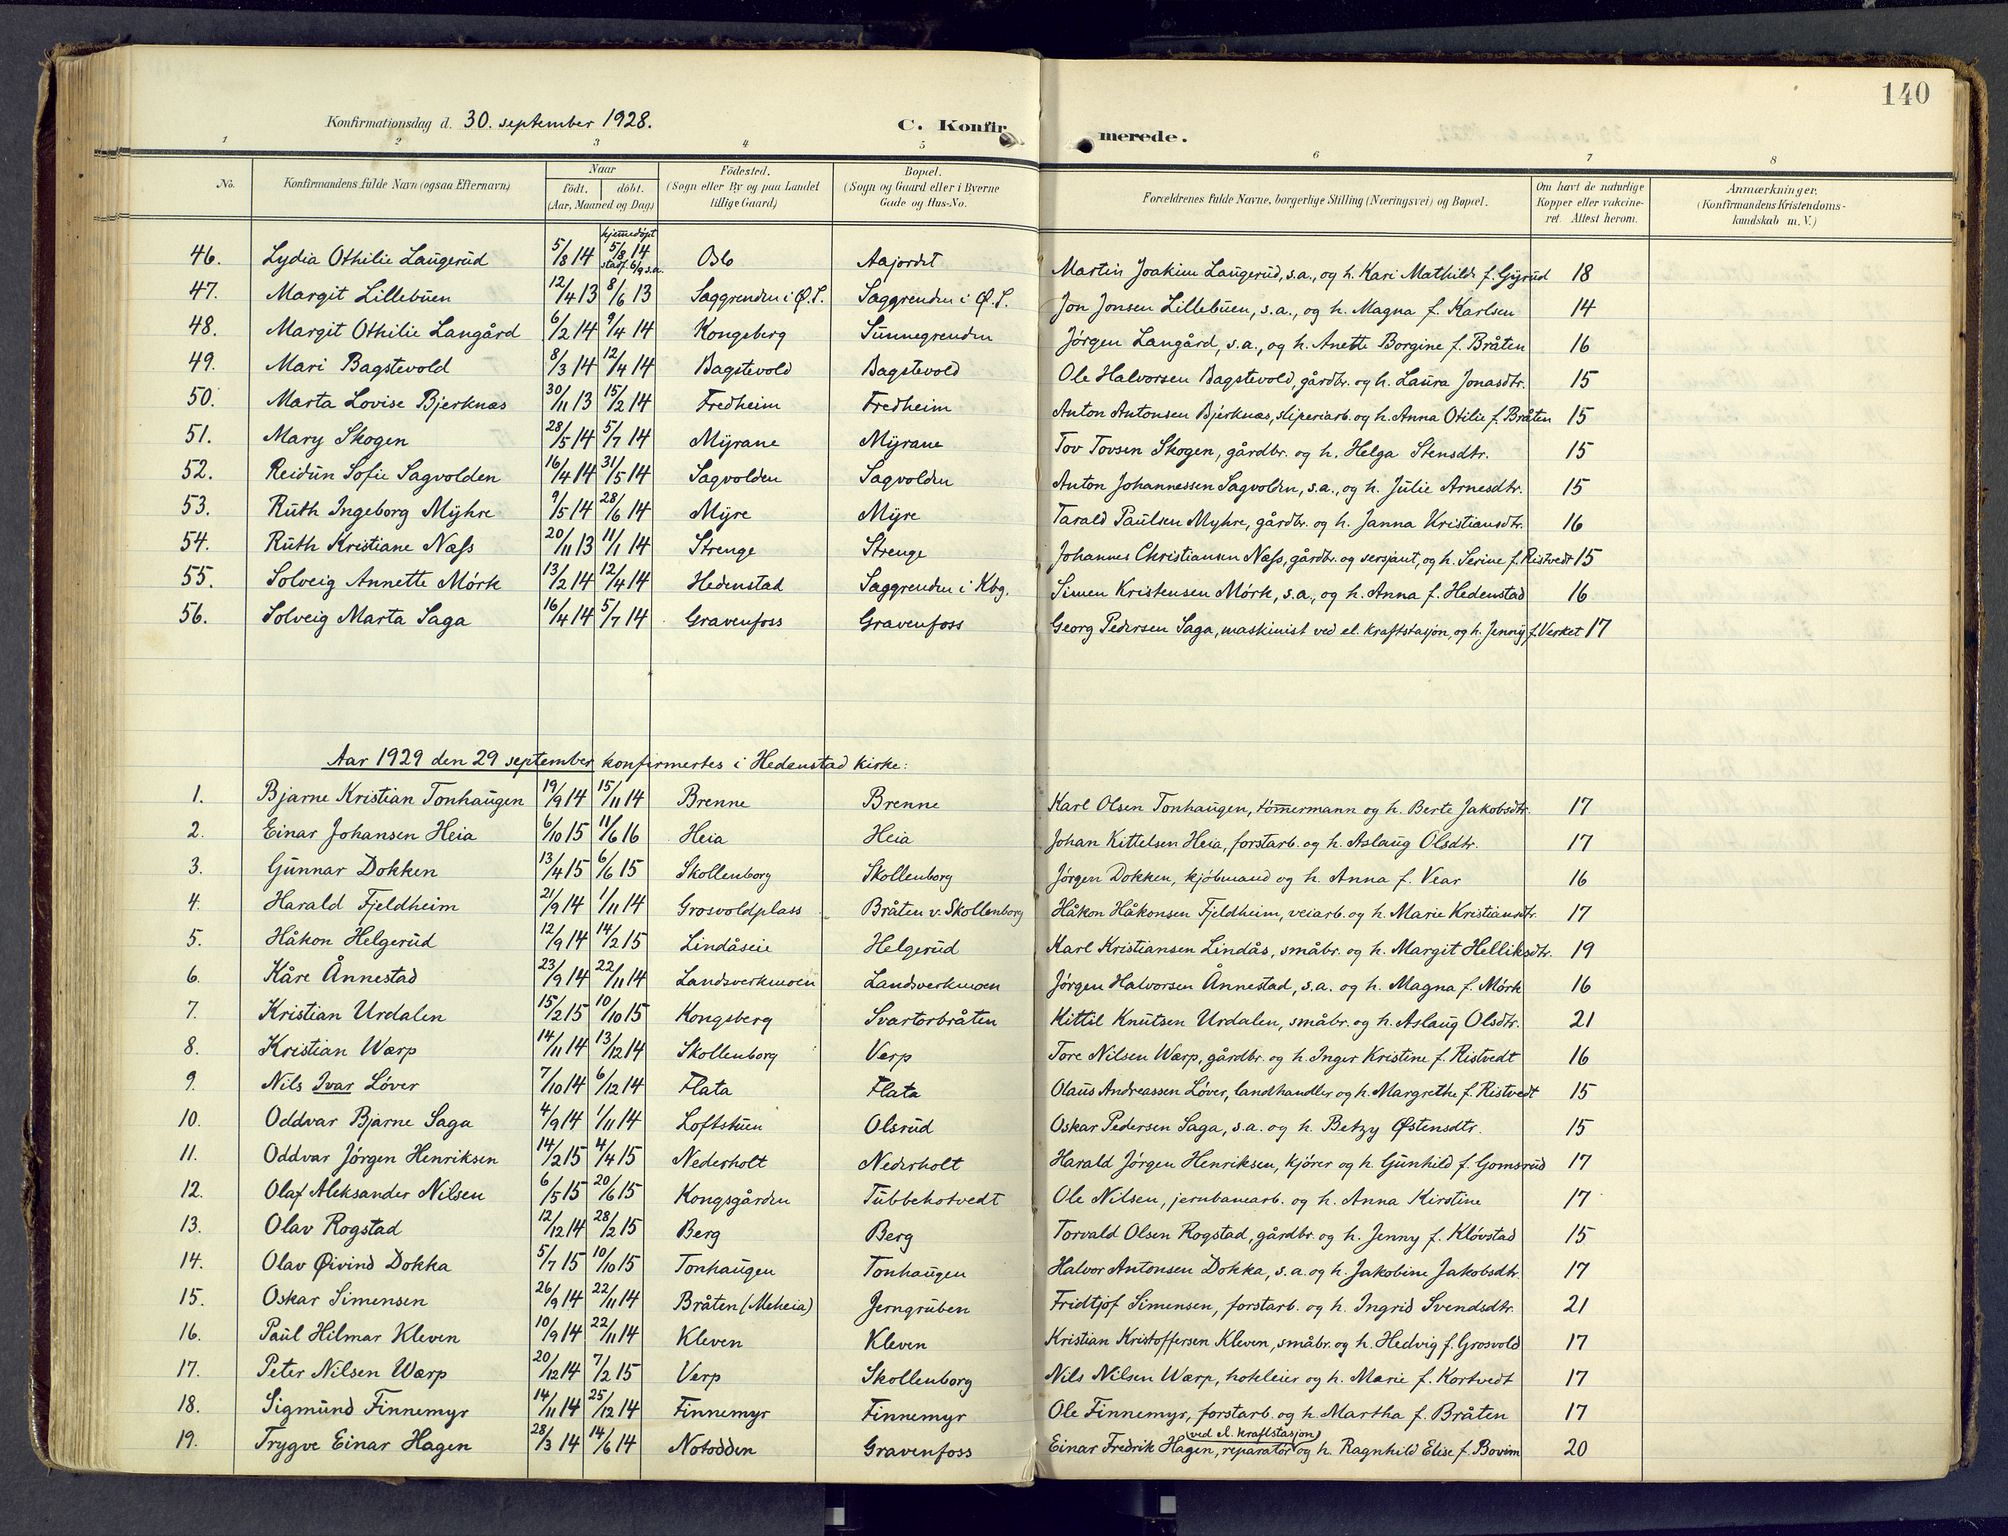 140
Konfirmationsdag d. 30. september 1928.
C. Konfirmerede.
1 2 3 4 5 6 7 8
No. | Konfirmandens fulde Navn (ogsaa Efternavn) | Naar födt. döbt. (Aar, Maaned og Dag) | Födested. (Sogn eller By og paa Landet tillige Gaard) | Bopæl. (Sogn og Gaard eller i Byerne Gade og Hus-No. | Forældrenes fulde Navne, borgerlige Stilling (Næringsvei) og Bopæl. | Om havt de naturlige Kopper eller vakcineret. Attest herom. | Anmærkninger. (Konfirmandens Kristendomskundskab m. V.)
46. Lydia Othilie Laugerud 5/8 14 hjemmedøpt 5/8 14 stadf. 6/9 s.a. Oslo Aajordet Martin Joakim Laugerud, s.a., og h. Kari Mathilde f. Gyrud 18
47. Margit Lillebuen 12/4 13 8/6 13 Saggrenden i Ø.S. Saggrenden i Ø.S. Jon Jonsen Lillebuen, s.a., og h. Magna f. Karlsen 14
48. Margit Othilie Langård 6/2 14 9/4 14 Kongsberg Sunnegrenden Jørgen Langård, s.a., og h. Anette Borgine f. Bråten 16
49. Mari Bagstevold 8/3 14 12/4 14 Bagstevold Bagstevold Ole Halvorsen Bagstevold, gårdbr. og h. Laura Jonasdtr. 15
50. Marta Lovise Bjerknæs 30/11 13 15/2 14 Fredheim Fredheim Anton Antonsen Bjerknæs, sliperiarb. og h. Anna Otilie f. Bråten 15
51. Mary Skogen 28/5 14 5/7 14 Myrane Myrane Tov Tovsen Skogen, gårdbr. og h. Helga Stensdtr. 15
52. Reidun Sofie Sagvolden 16/4 14 31/5 14 Sagvolden Sagvolden Anton Johannessen Sagvolden, s.a., og h. Julie Arnesdtr. 15
53. Ruth Ingeborg Myhre 9/5 14 28/6 14 Myre Myre Tarald Paulsen Myhre, gårdbr. og h. Janna Kristiansdtr. 16
54. Ruth Kristiane Næss 20/11 13 11/1 14 Strenge Strenge Johannes Christiansen Næss, gårdbr. og sersjant, og h. Serine f. Ristvedt 15
55. Solveig Annette Mørk 13/2 14 12/4 14 Hedenstad Saggrenden i Kbg. Simen Kristensen Mørk, s.a., og h. Anna f. Hedenstad 16
56. Solveig Marta Saga 16/4 14 5/7 14 Gravenfoss Gravenfoss Georg Pedersen Saga, maskinist ved el. kraftstasjon, og h. Jenny f. Verket 17
Aar 1929 den 29 september konfirmertes i Hedenstad kirke:
1. Bjarne Kristian Tonhaugen 19/9 14 15/11 14 Brenne Brenne Karl Olsen Tonhaugen, tømmermann og h. Berte Jakobsdtr. 17
2. Einar Johansen Heia 6/10 15 11/6 16 Heia Heia Johan Kittelsen Heia, forstarb. og h. Aslaug Olsdtr. 17
3. Gunnar Dokken 13/4 15 6/6 15 Skollenborg Skollenborg Jørgen Dokken, kjøbmand og h. Anna f. Vear 16
4. Harald Fjeldheim 21/9 14 1/11 14 Grosvoldplass Bråten v. Skollenborg Håkon Håkonsen Fjeldheim, veiarb. og h. Marie Kristiansdtr. 17
5. Håkon Helgerud 12/9 14 14/2 15 Lindåseie Helgerud Karl Kristiansen Lindås, småbr. og h. Margit Helliksdtr. 19
6. Kåre Ånnestad 23/9 14 22/11 14 Landsverkmoen Landsverkmoen Jørgen Halvorsen Ånnestad, s.a. og h. Magna f. Mørk 16
7. Kristian Urdalen 15/2 15 10/10 15 Kongsberg Svartorbråten Kittil Knutsen Urdalen, småbr. og h. Aslaug Olsdtr. 21
8. Kristian Wærp 14/11 14 13/12 14 Skollenborg Verp Tore Nilsen Wærp, gårdbr. og h. Inger Kristine f. Ristvedt 16
9. Nils Ivar Løver 7/10 14 6/12 14 Flata Flata Olaus Andreassen Løver, landhandler og h. Margrethe f. Ristvedt 15
10. Oddvar Bjarne Saga 4/9 14 1/11 14 Loftshuen Olsrud Oskar Pedersen Saga, s.a. og h. Betzy Østensdtr. 15
11. Oddvar Jørgen Henriksen 14/2 15 4/4 15 Nederholt Nederholt Harald Jørgen Henriksen, kjører og h. Gunhild f. Gomsrud 17
12. Olaf Aleksander Nilsen 6/5 15 20/6 15 Kongsgården Tubbehotvedt Ole Nilsen, jernbanearb. og h. Anna Kirstine 17
13. Olav Rogstad 12/12 14 28/2 15 Berg Berg Torvald Olsen Rogstad, gårdbr. og h. Jenny f. Kløvstad 15
14. Olav Øivind Dokka 5/7 15 10/10 15 Tonhaugen Tonhaugen Halvor Antonsen Dokka, s.a. og h. Jakobine Jakobsdtr. 17
15. Oskar Simensen 26/9 14 22/11 14 Bråten (Meheia) Jerngruben Fridtjof Simensen, forstarb. og h. Ingrid Svendsdtr. 21
16. Paul Hilmar Kleven 10/9 14 22/11 14 Kleven Kleven Kristian Kristoffersen Kleven, småbr. og h. Hedvig f. Grosvold 17
17. Peter Nilsen Wærp 20/12 14 7/2 15 Verp Skollenborg Nils Nilsen Wærp, hoteleier og h. Marie f. Kortvedt 17
18. Sigmund Finnemyr 14/11 14 25/12 14 Finnemyr Finnemyr Ole Finnemyr, forstarb. og h. Martha f. Bråten 17
19. Trygve Einar Hagen 28/3 14 14/6 14 Notodden Gravenfoss Einar Fredrik Hagen, reparatør (ved el. kraftstasjon) og h. Ragnhild Elise f. Bovim 20